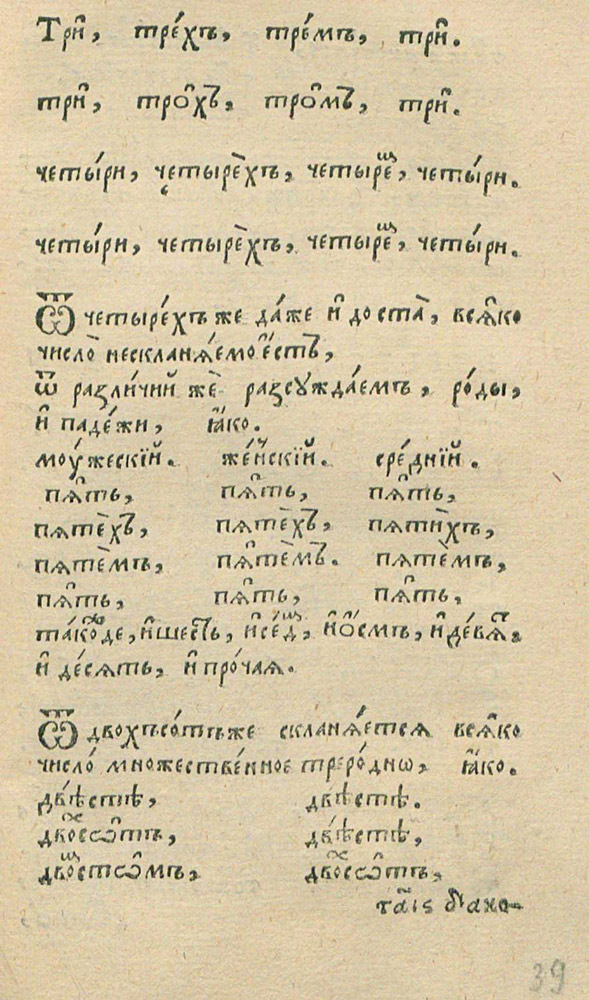 Три̂, тре́хъ, тре́мъ, три̂.
три̂, тро̂хъ, тро̂мъ, три̂.
четы́ри, четырѐхъ, четырѐⷨ, четы́ри.
четы́ри, четырѐхъ, четырѐⷨ, четы́ри.
Ѿ четыре́хъ же да́же и҆ до ста̀, всѧ̂ко
число̀ несклонѧ́емо е҆́стъ,
ѿ разли́чий жѐ разсꙋжда́емъ, ро́ды,
и҆ паде́жи, ꙗ҆́ко.
моу́жескїй. же́нскїй. сре́днїй.
пѧ̂ть, пѧ̂ть, пѧ̂ть,
пѧтѐхъ, пѧтѐхъ, пѧтѝхъ,
пѧтѐмъ, пѧтѐмъ. пѧтѐмъ,
пѧ̂ть, пѧ̂ть, пѧ̂ть.
та́коⷤде, и҆ ше́сть, и҆ се́дⷨ, и҆ о҆́смъ, и҆ де́вѧⷮ.
и҆ де́сѧть, и҆ про́чаѧ.
Ѿ двохъсо́тъже скланѧ́етсѧ всѧ̂ко
число́ мно́жестве́нное треро́днѡ, ꙗ҆́ко.
двѣ́стѣ, двѣ́стѣ.
двоⷯсѡ̂тъ, двѣ́стѣ,
двоⷨстѡ̂мъ, двоⷯсѡ̂тъ,
ταῖς δίακο-
39